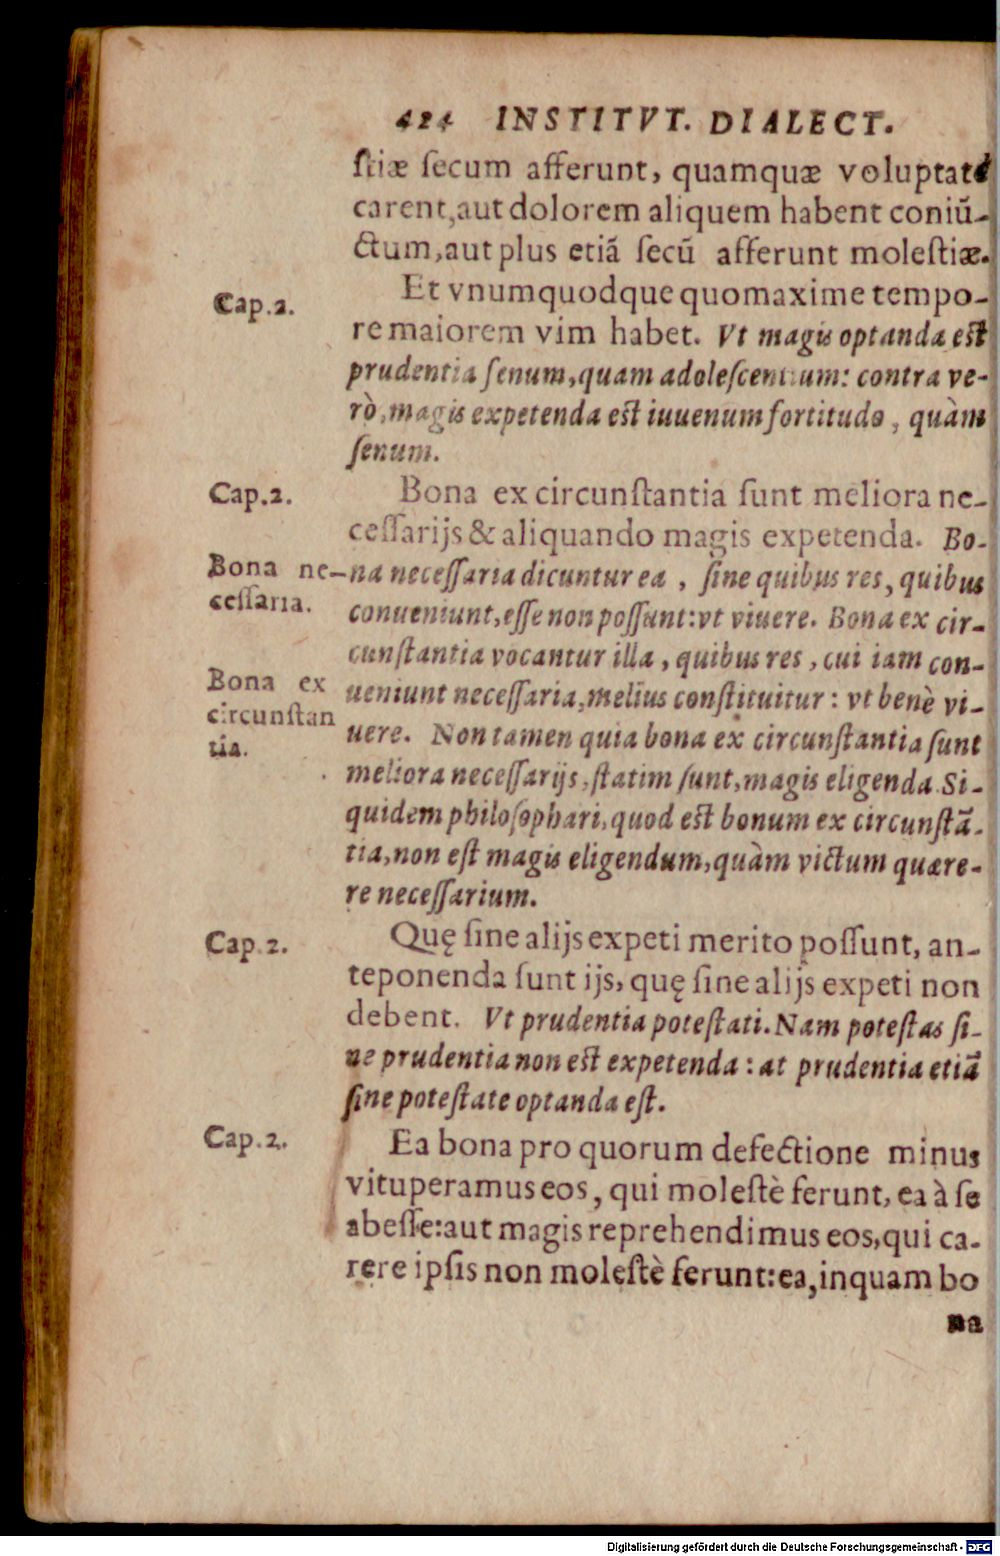 424 INSTITVT. DIALECT.
stiæ secum afferunt, quamquæ voluptate
carent, aut dolorem aliquem habent coniũ-
ctum, aut plus etiã secũ afferunt molestiæ.
Cap.2.
Et vnumquodque quo maxime tempo-
re maiorem vim habet. Vt magis optanda est
prudentia senum, quam adolescentium: contra ve-
rò, magis expetenda est iuuenum fortitudo, quàm
senum.
Cap.2.
Bona ex circunstantia sunt meliora ne-
cessarijs & aliquando magis expetenda. Bo-
Bona ne-
cessaria.
na necessaria dicuntur ea, sine quibus res, quibus
conueniunt, esse non possunt: vt viuere. Bona ex cir-
cunstantia vocantur illa, quibus res, cui iam con-
Bona ex
circunstan
tia.
ueniunt necessaria, melius constituitur: vt benè vi-
uere. Non tamen quia bona ex circunstantia sunt
meliora necessarijs, statim sunt, magis eligenda. Si-
quidem philosophari, quod est bonum ex circunstã-
tia, non est magis eligendum, quàm victum quære-
re necessarium.
Cap.2.
Quę sine alijs expeti merito possunt, an-
teponenda sunt ijs, quę sine alijs expeti non
debent. Vt prudentia potestati. Nam potestas si-
ne prudentia non est expetenda: at prudentia etiã
sine potestate optanda est.
Cap.2.
Ea bona pro quorum defectione minus
vituperamus eos, qui molestè ferunt, ea à se
abesse: aut magis reprehendimus eos, qui ca-
rere ipsis non molestè ferunt: ea, inquam bo
na
Digitalisierung gefördert durch die Deutsche Forschungsgemeinschaft - DFG